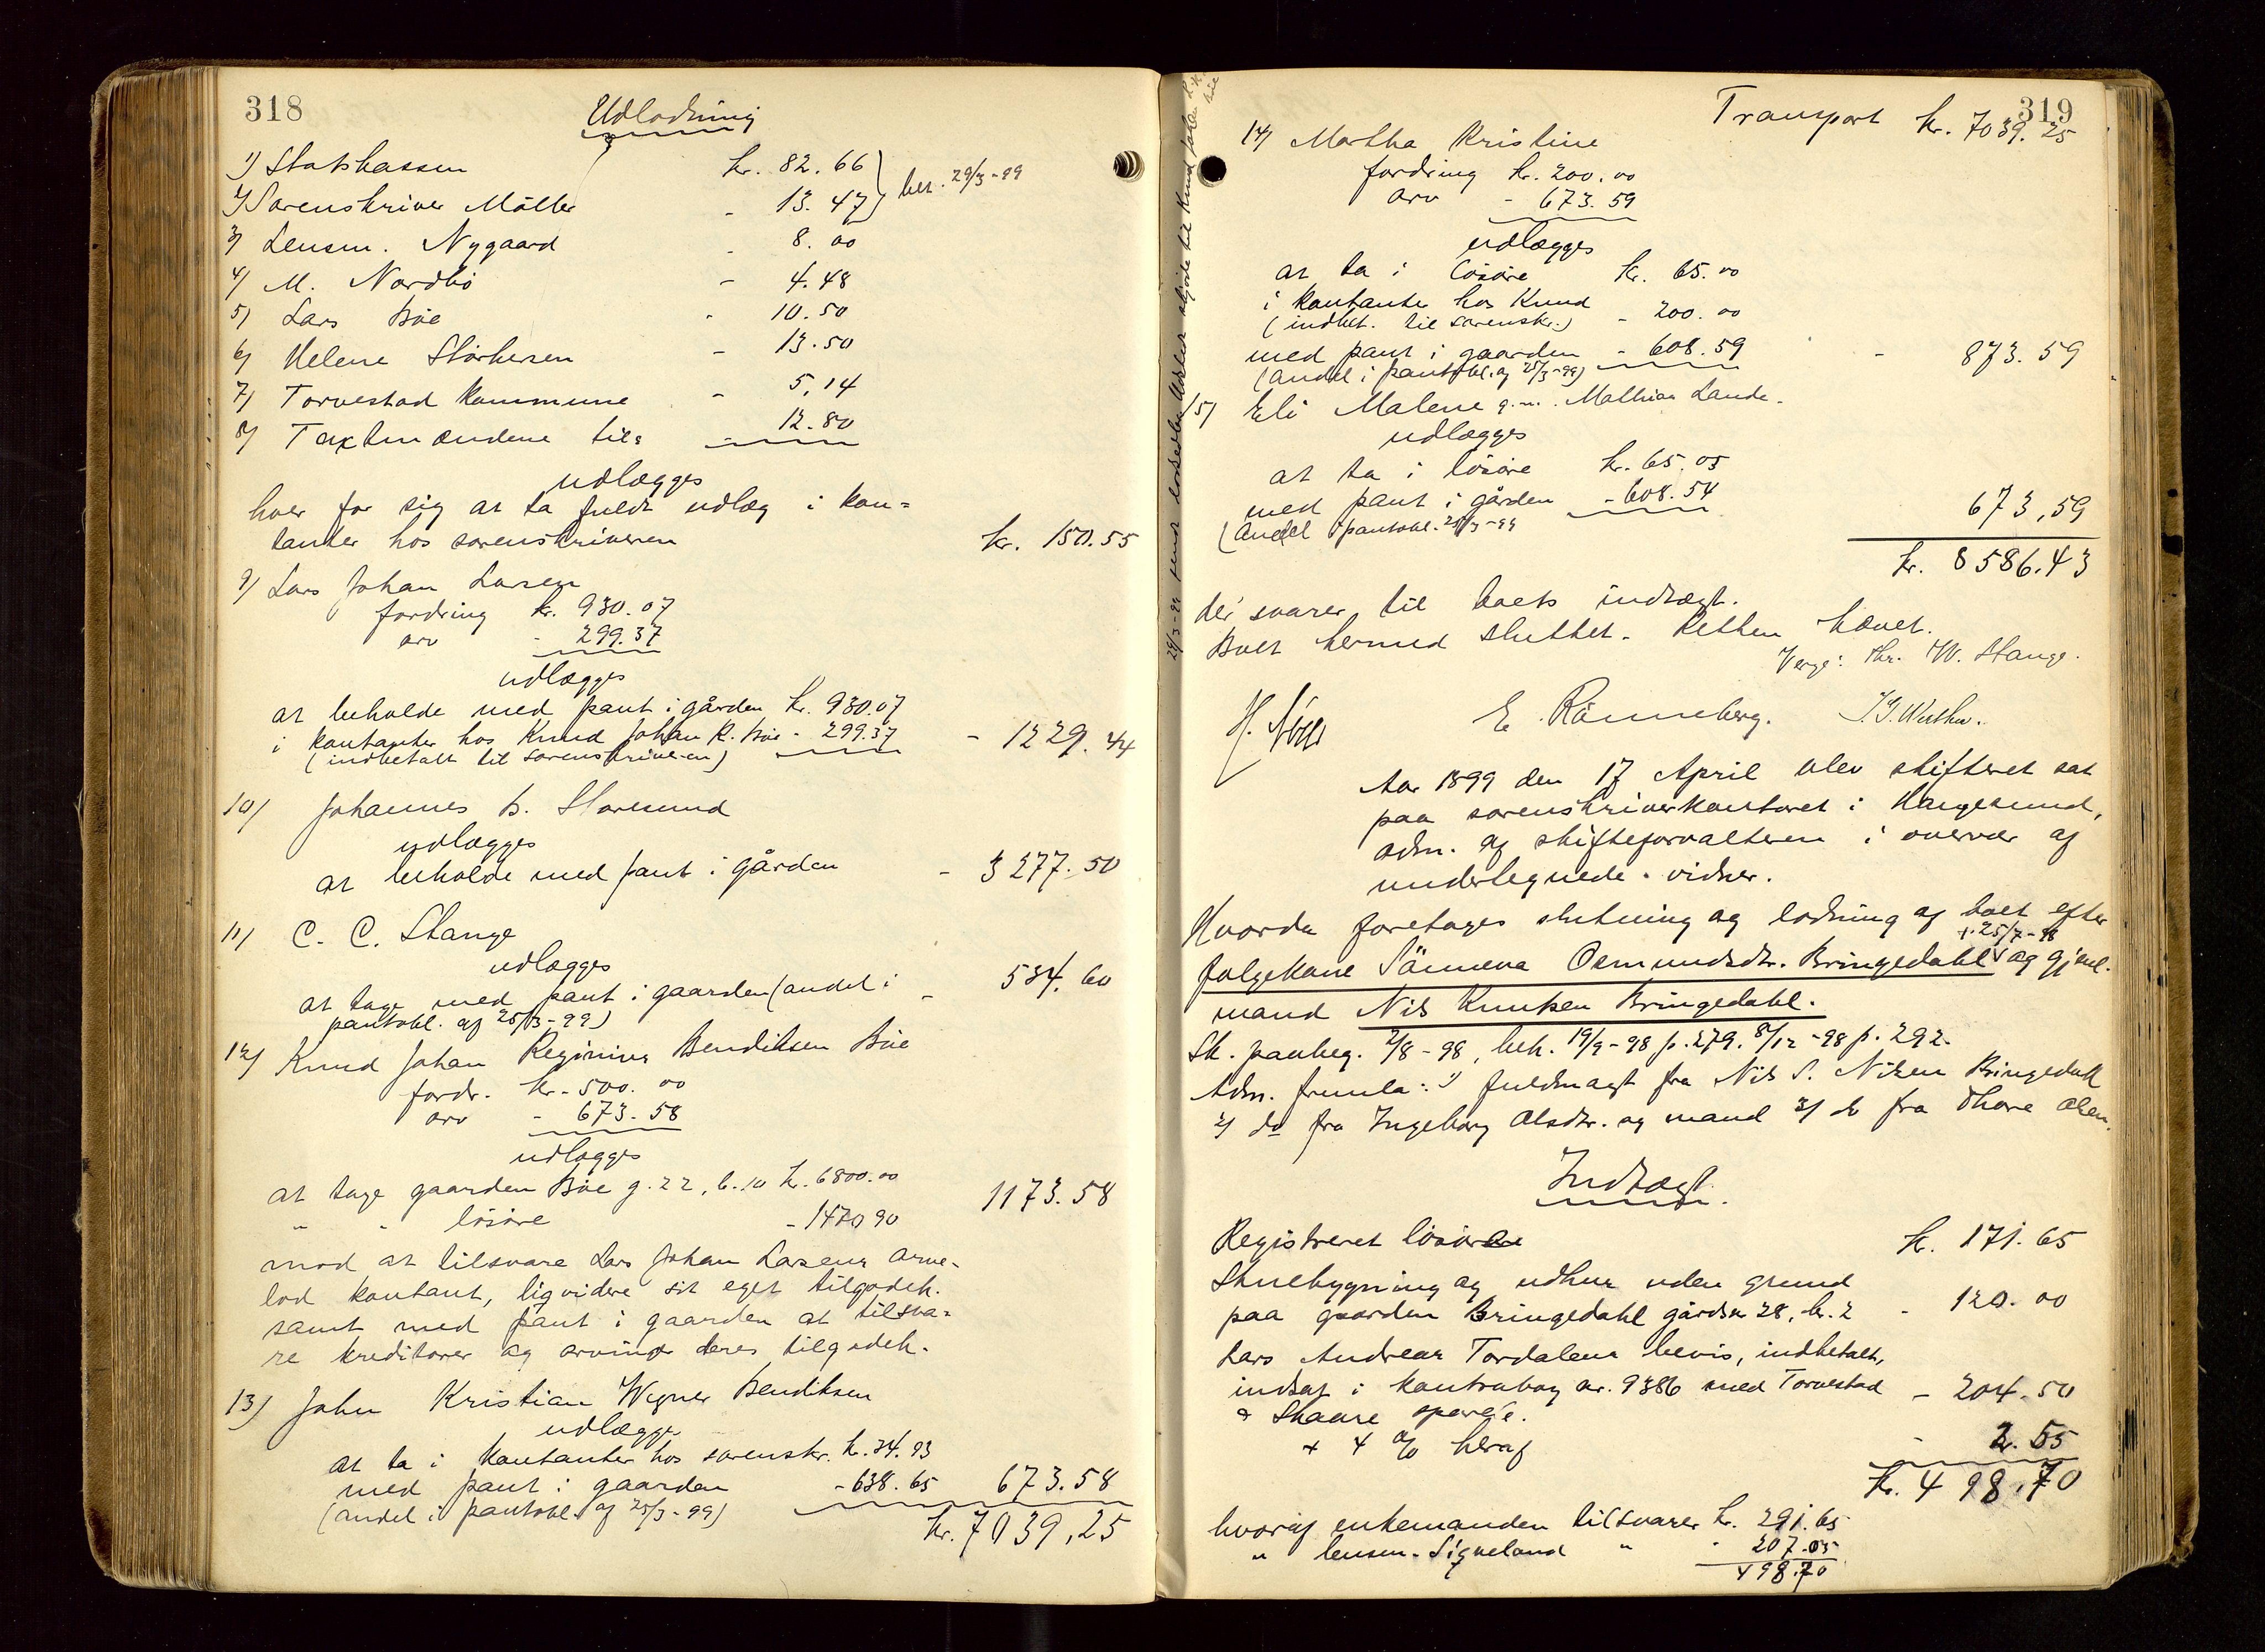 318
Udlodning
1) Statskassen kr. 82.66
2) Sorenskriver Möller - 13.47 } bet. 29/3-99
3) Lensm. Nygaard - 8.00
4) M. Nordbö - 4.48
5) Lars Böe - 10.50
6) Helene Störkersen - 13.50
7) Torvestad kommune - 5,14
8) Taxtmændene tils - 12.80
udlægges
hver for sig at ta fuldt udlæg i kon=
tanter hos sorenskriveren kr. 150.55
9) Lars Johan Larsen
fordring kr. 930.07
arv - 299.37
udlægges
at beholde med pant i gården kr. 930.07
i kontanter hos Knud Johan R. Böe - 299.37 - 1229.44
(indbetalt til sorenskriveren)
10) Johannes B. Storesund
udlægges
at beholde med pant i gården - 3277.50
11) C. C. Stange
udlægges
at tage med pant i gaarden (andel i - 534.60
pantobl. af 25/3-99)
12) Knud Johan Reginius Bendiksen Böe
fordr. kr. 500.00
arv - 673.58
udlægges
at tage gaarden Böe g. 22, b. 10 kr. 6800.00
" - lösöre - 1470 90 1173.58
mod at tilsvare Lars Johan Larsens arve-
lod kontant, ligvidere sit eget tilgodeh.
samt med pant i gaarden at tilsva=
re kreditorer og arvinger deres tilgodeh.
13) John Kristian Wegner Bendiksen
udlægges
at ta i kontanter hos sorenskr. kr. 34.93
med pant i gaarden - 638.65 673.58
(andel i pantobl. af 25/3-99)
kr. 7039,25
319
Transport kr. 7039.25
14) Martha Kristine
fordring kr. 200.00
arv - 673.59
udlægges
at ta i lösöre kr. 65.00
i kontanter hos Knud - 200.00
(indbet. til sorenskr.)
med pant i gaarden - 608.59 - 873.59
(andel i pantobl. af 25/3-99)
15) Eli Malene g.m. Mathias Lande.
udlægges
at ta i lösöre kr. 65.05
med pant i gården - 608.54 673,59
(andel i pantobl. 25/3-99
kr. 8586.43
der svarer til boets indtægt.
Boet hermed sluttet. Retten hævet.
Verge: Chr. W. Stange.
E. Rönneberg.
Aar 1899 den 17 April blev skifteret sat
paa sorenskriverkontoret i Haugesund,
adm. af skifteforvalteren i overvær af
undertegnede vidner.
Hvorda foretages slutning og lodning af boet efter
+ 25/7-98
folgekone Sönneva Osmundsdtr. Bringedahl og gjenl.
mand Nils Knutsen Bringedahl.
Sk. paabeg. 2/8-98, beh. 19/9-98 p. 279. 8/12-98 p. 292.
Adm. fremla: 1) fuldmagt fra Nils S. Nilsen Bringedahl
2) do fra Ingeborg Olsdtr. og mand 3) do fra Thore Olsen.
Indtægt.
Registreret lösöre kr. 171.65
Stuebygning og udhus uden grund
paa gaarden Bringedahl gårdsn 28, br. 2 - 120.00
Lars Andreas Tordalens bevis, indbetalt,
indsat i kontrabog nr. 9386 med Torvestad - 204.50
& Skaare spareb.
+ 4 % heraf - 2.55
kr. 498.70
hvoraf enkemanden tilsvarer kr. 291.65
" lensm. Sigveland " - 207.05
498.70